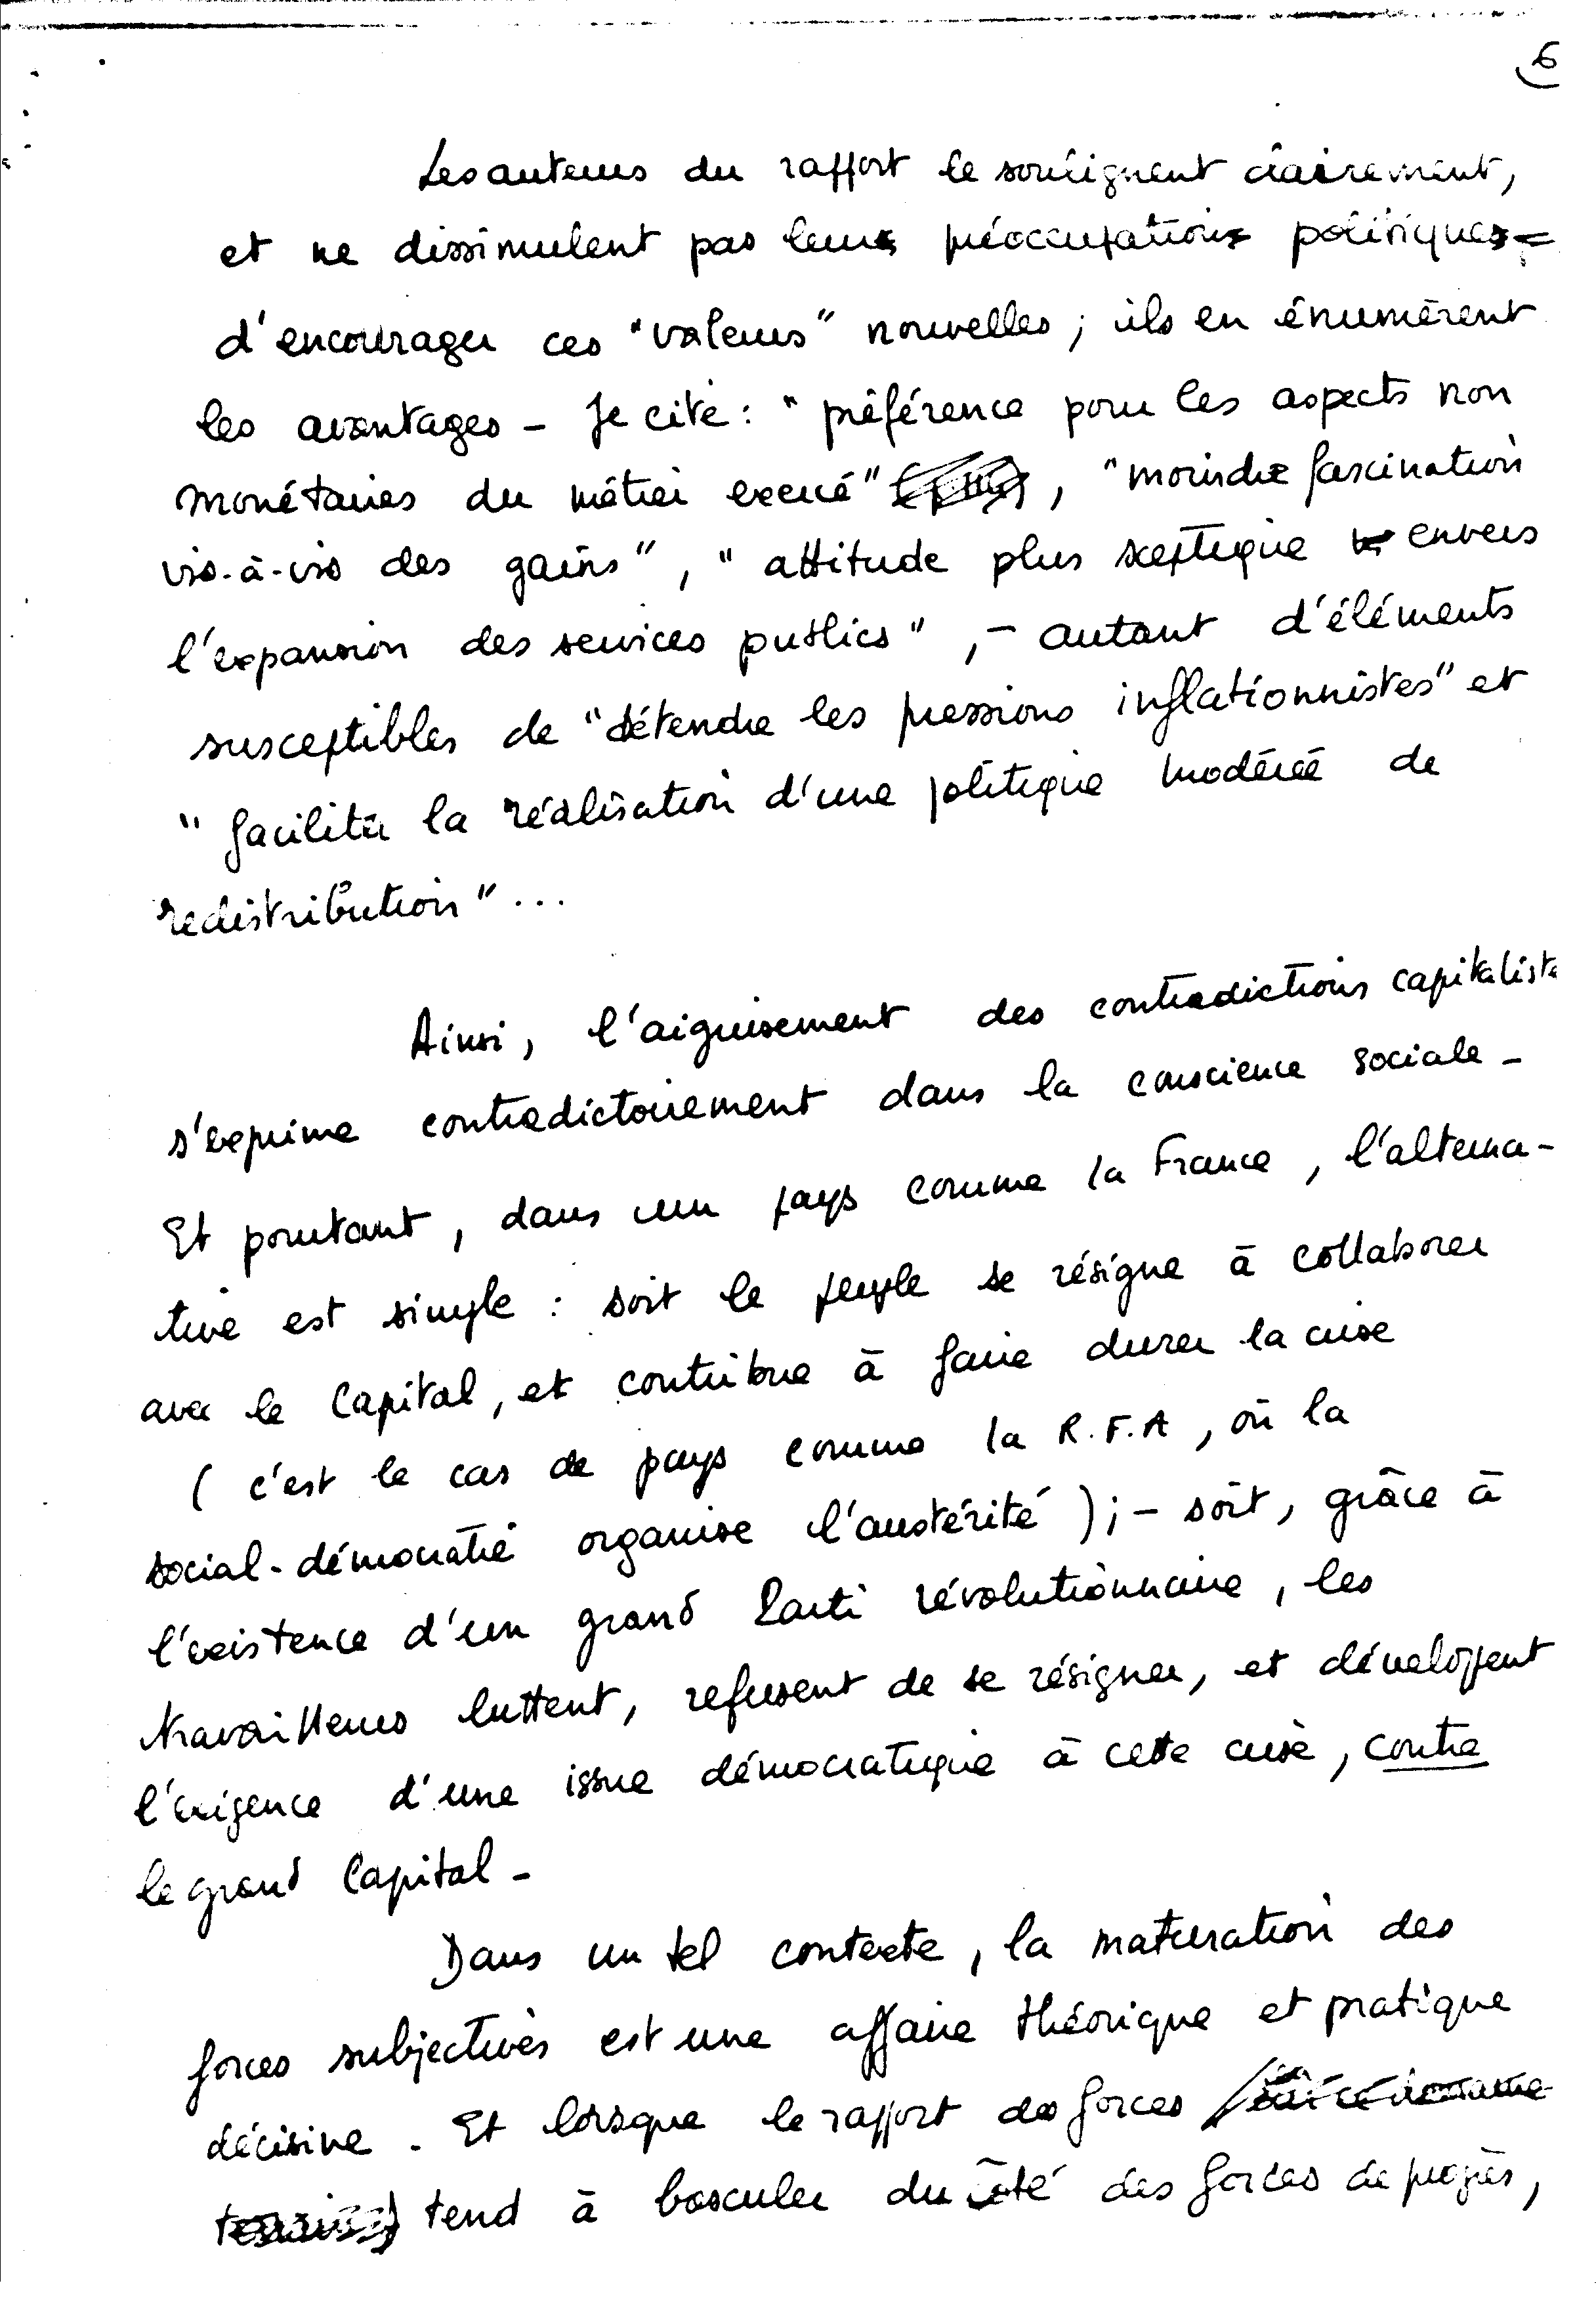 6
Les auteurs du rapport le soulignent clairement,
et ne dissimulent pas leur préoccupation politique
d'encourager ces "valeurs" nouvelles ; ils en énumèrent
les avantages - Je cite : "préférence pour les aspects non
monétaires du métier exercé" , "moindre fascination
vis-à-vis des gains", "attitude plus sceptique envers
l'expansion des services publics" , - autant d'éléments
susceptibles de "détendre les pressions inflationnistes" et
"faciliter la réalisation d'une politique modérée de
redistribution" ...
Ainsi, l'aiguisement des contradictions capitaliste
s'exprime contradictoirement dans la conscience sociale -
Et pourtant, dans un pays comme la France, l'alterna-
tive est simple : soit le peuple se résigne à collaborer
avec le Capital, et contribue à faire durer la crise
( c'est le cas de pays comme la R.F.A, où la
social-démocratie organise l'austérité ) ; - soit, grâce à
l'existence d'un grand Parti révolutionnaire, les
travailleurs luttent, refusent de se résigner, et développent
l'exigence d'une issue démocratique à cette crise, contre
le grand Capital -
Dans un tel contexte, la maturation des
forces subjectives est une affaire théorique et pratique
décisive. Et lorsque le rapport des forces
tend à basculer du côté des forces de progrès,